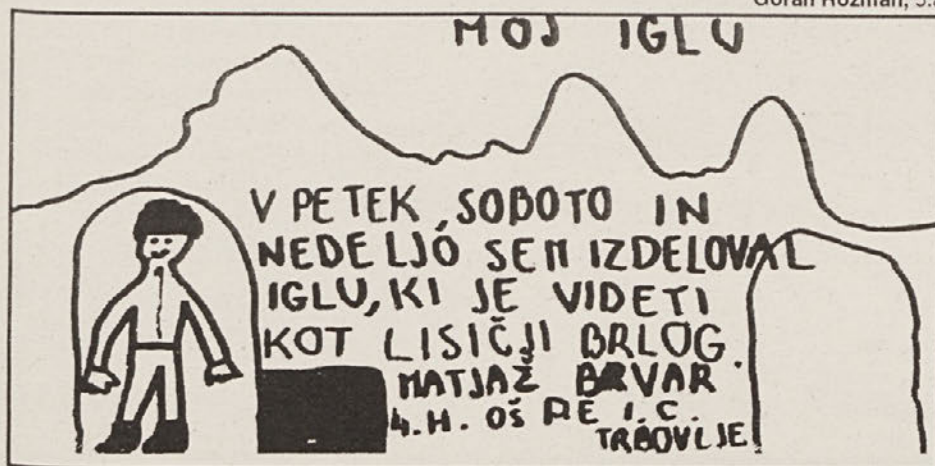 Goran Rozman, 5.
MOJ IGLU
V PETEK, SOBOTO IN
NEDELJO SEM IZDELOVAL
IGLU, KI JE VIDETI
KOT LISIČJI BRLOG.
MATJAŽ BRVAR
4. H. OŠ RE I. C.
TRBOVLJE